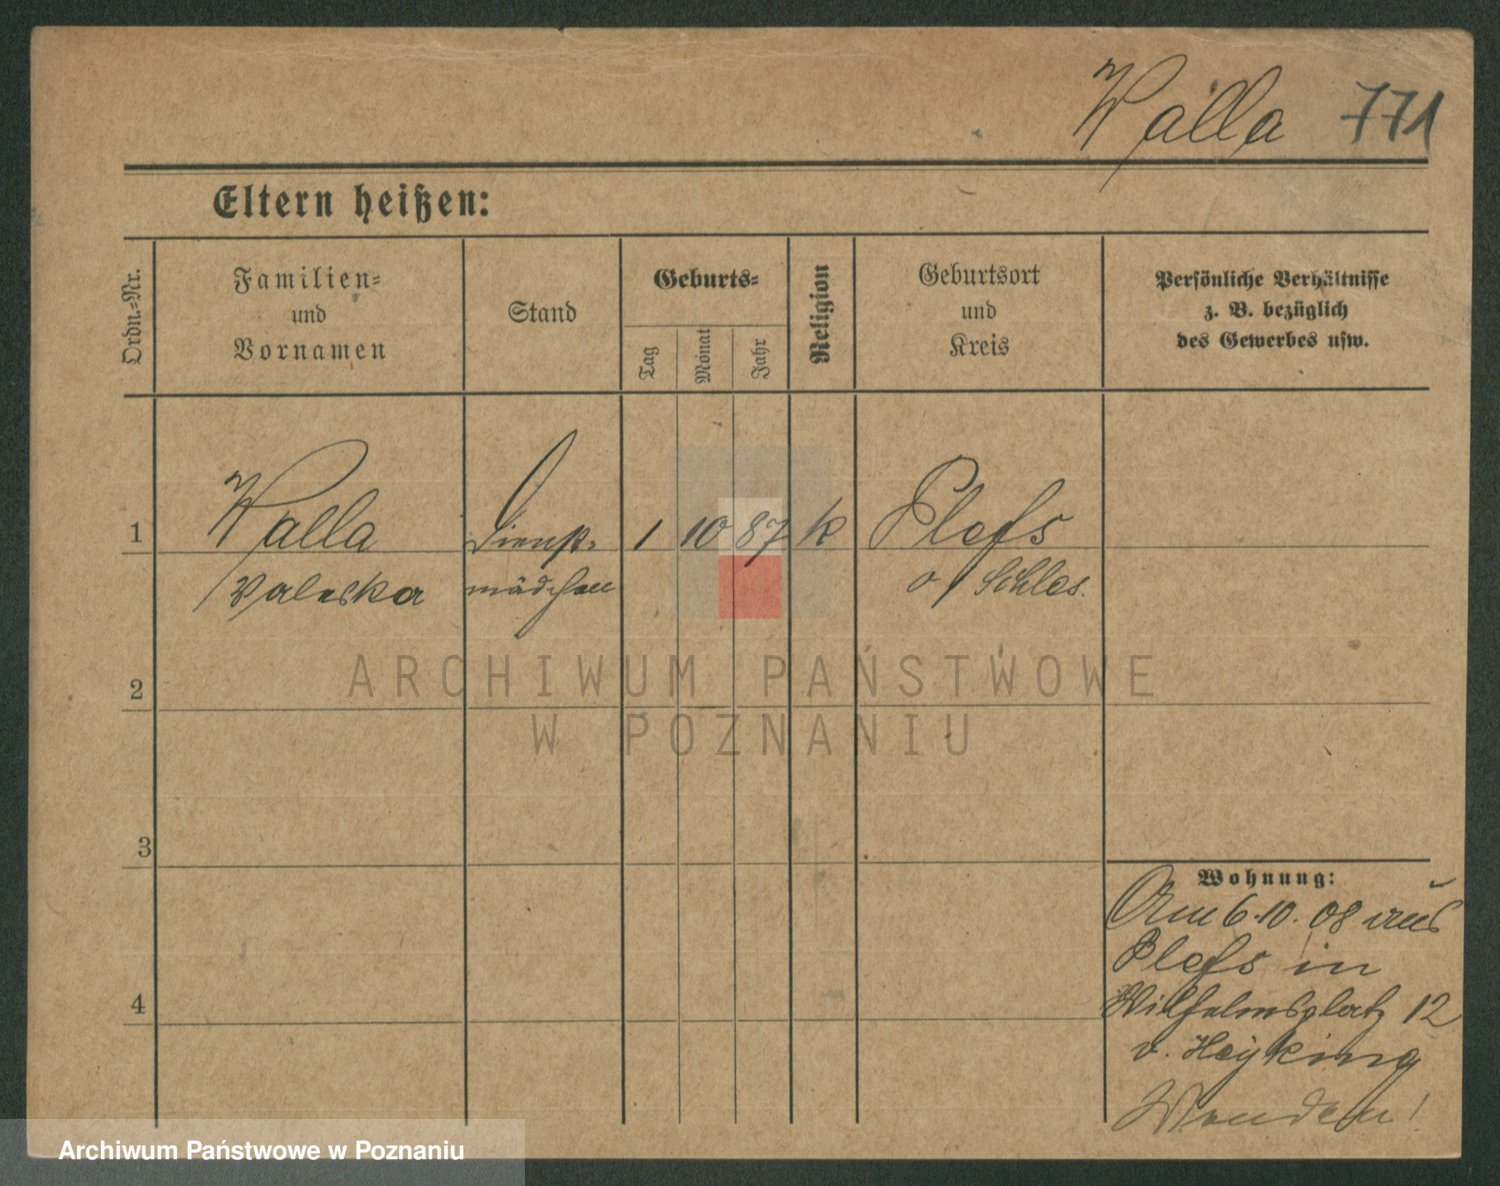 Walla 771
Eltern heißen:
Ordn.-Nr.
Familien-
und
Vornamen
Stand
Geburts-
Tag
Monat
Jahr
Religion
Geburtsort
und
Kreis
Persönliche Verhältnisse
z. B. bezüglich
des Gewerbes usw.
1 Walla Dienst- 1 10 87 k Pless
Valeska mädchen o/Schles.
2
3
4
Wohnung:
Am 6.10.08 aus
Pless in
Wilhelmsplatz 12
v. Heyking
Wenden!
ARCHIWUM PAŃSTWOWE
W POZNANIU
Archiwum Państwowe w Poznaniu